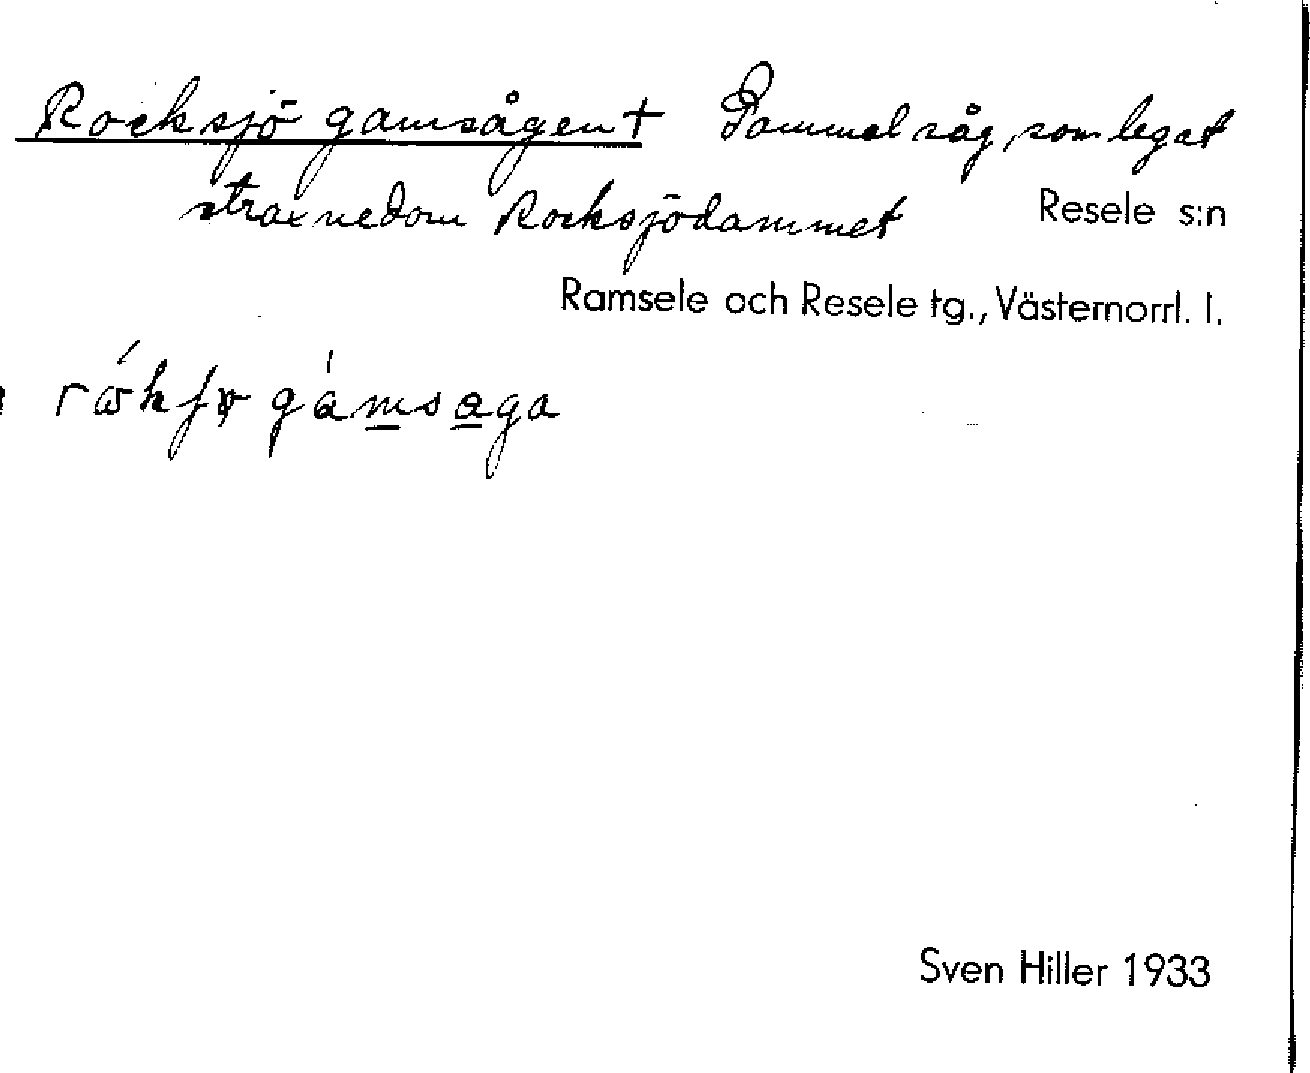 Rocksjö gamsågen † Gammal såg, som legat
strax nedom Rocksjödammet Resele s:n
Ramsele och Resele tg., Västernorrl. l.
gámsaga
Sven Hiller 1933